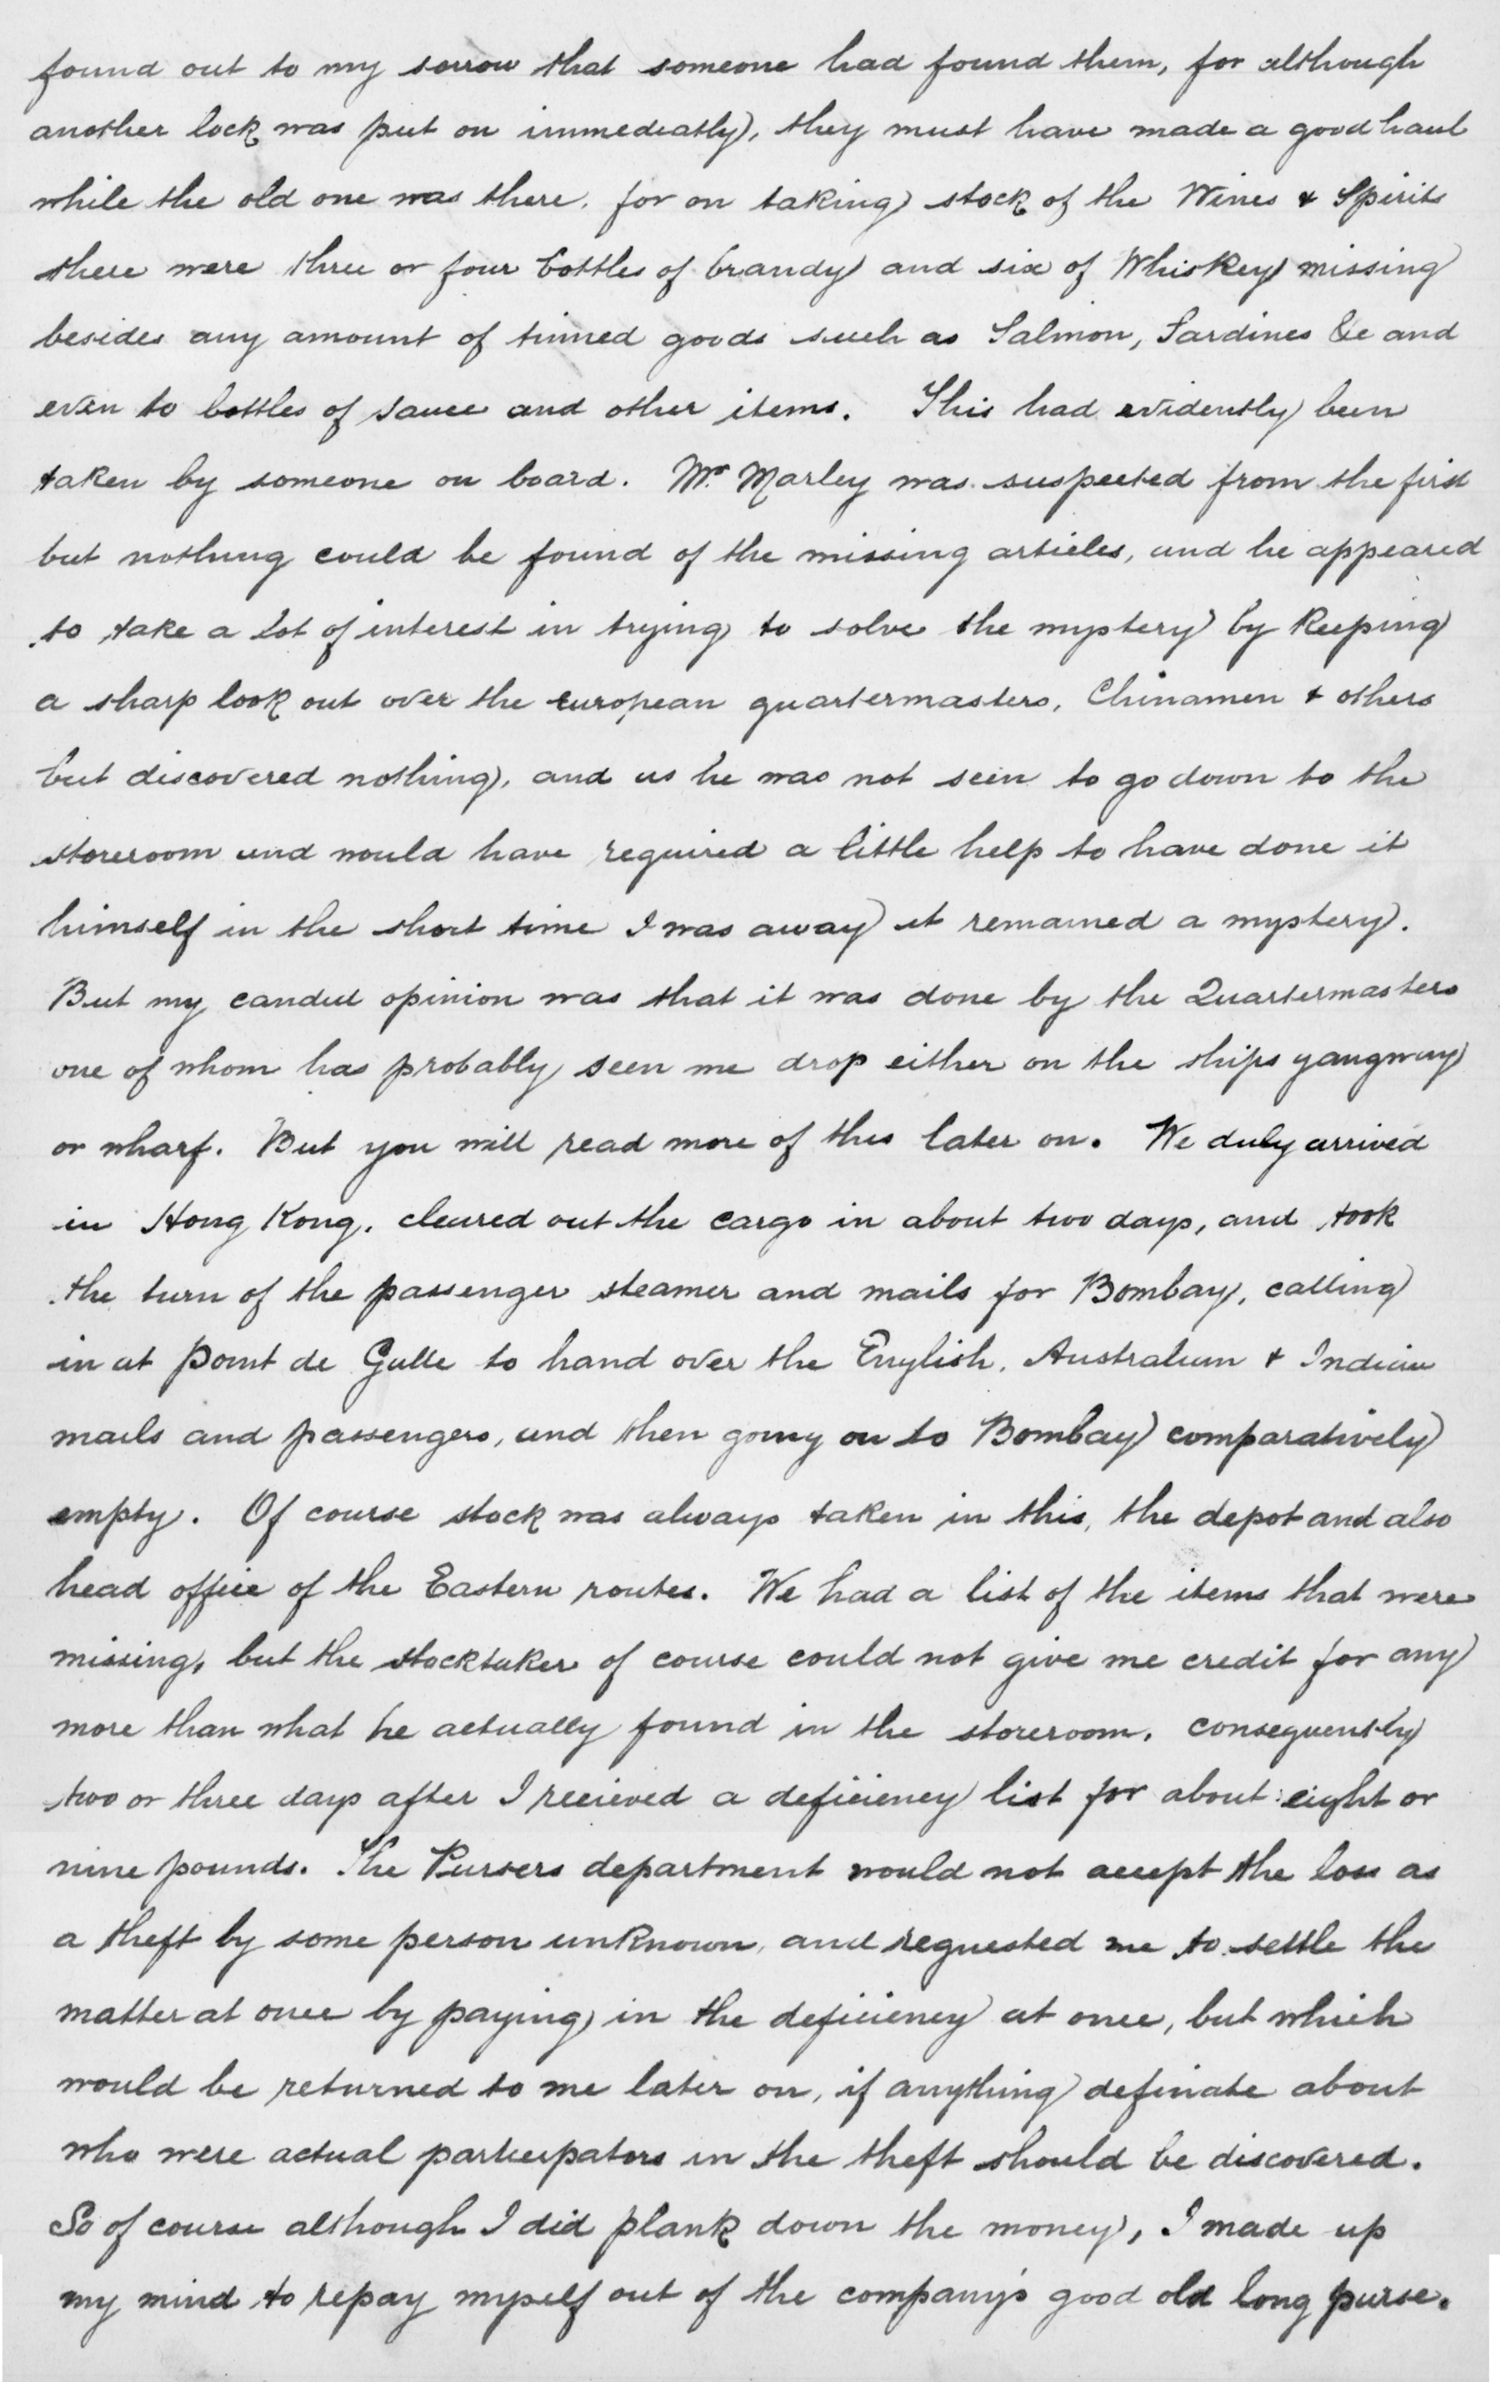 found out to my sorrow that someone had found them, for although
another lock was put on immedeatly, they must have made a good haul
while the old one was there, for on taking stock of the Wines & Spirits
there were three or four bottles of brandy and six of Whiskey missing
besides any amount of tinned goods such as Salmon, Sardines &c and
even to bottles of sauce and other items. This had evidently been
taken by someone on board. Mr. Marley was suspected from the first
but nothing could be found of the missing articles, and he appeared
to take a lot of interest in trying to solve the mystery by keeping
a sharp look out over the european quartermasters, Chinamen & others
but discovered nothing, and as he was not seen to go down to the
storeroom and would have required a little help to have done it
himself in the short time I was away it remained a mystery.
But my candid opinion was that it was done by the Quartermasters
one of whom has probably seen me drop either on the ships gangway
or wharf. But you will read more of this later on. We duly arrived
in Hong Kong, cleared out the cargo in about two days, and took
the turn of the passenger steamer and mails for Bombay, calling
in at point de Galle to hand over the English, Australian & Indian
mails and passengers, and then going on to Bombay comparatively
empty. Of course stock was always taken in this, the depot and also
head office of the Eastern routes. We had a list of the items that were
missing, but the stocktaker of course could not give me credit for any
more than what he actually found in the storeroom, consequently
two or three days after I recieved a deficiency list for about eight or
nine pounds. The Pursers department would not accept the loss as
a theft by some person unknown, and requested me to settle the
matter at once by paying in the deficiency at once, but which
would be returned to me later on, if anything definate about
who were actual participators in the theft should be discovered.
So of course although I did plank down the money, I made up
my mind to repay myself out of the company's good old long purse.